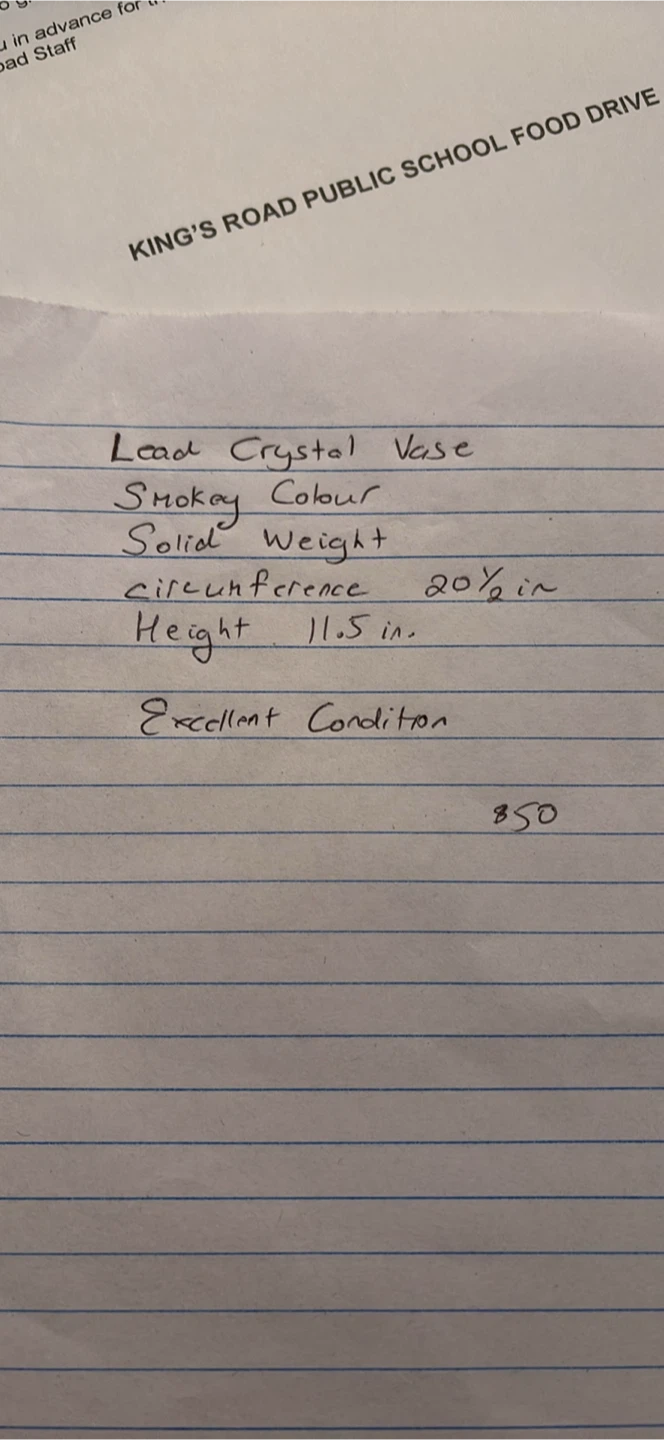 in advance for
Staff
KING'S ROAD PUBLIC SCHOOL FOOD DRIVE
Lead Crystal Vase
Smokey Colour
Solid Weight
circumference 20½ in
Height 11.5 in.
Excellent Condition
850